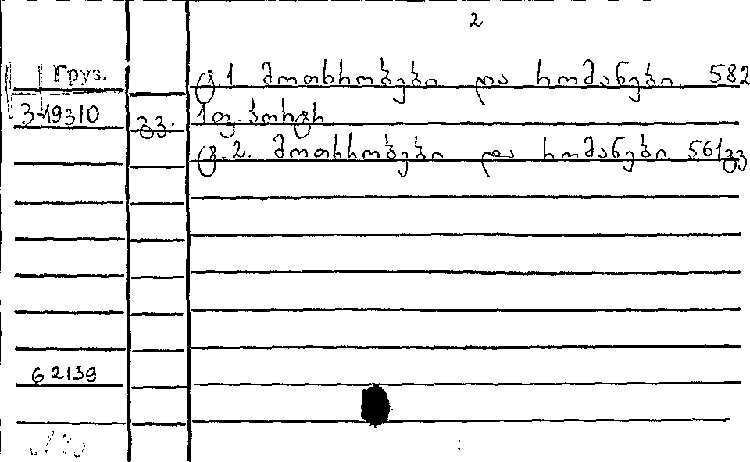 2
Груз.
ტ 1 მოთხრობები და რომანები 582
3-19310
გვ. 1 ფ. პორტრ
ტ. 2. მოთხრობები და რომანები 561 გვ
6 2139